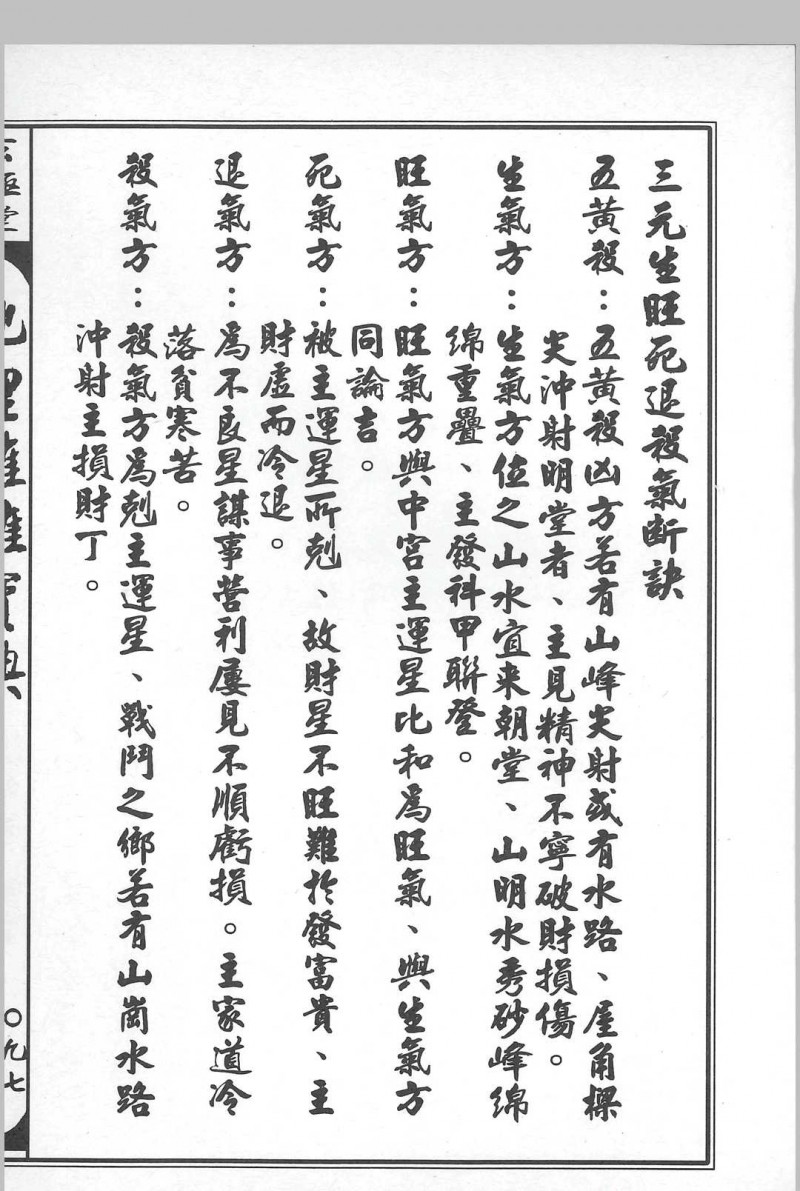 三元生旺死退殺氣断訣
五黃殺：五黃殺凶方若有山峰尖射或有水路、屋角樑
尖沖射明堂者、主見精神不寧破財損傷。
生氣方：生氣方位之山水宜来朝堂、山明水秀砂峰綿
綿重疊、主發科甲聯登。
旺氣方：旺氣方與中宮主運星比和為旺氣、與生氣方
同論吉。
死氣方：被主運星所剋、故財星不旺難於發富貴、主
財虛而冷退。
退氣方：為不良星謀事營利屢見不順虧損。主家道冷
落貧寒苦。
殺氣方：殺氣方為剋主運星、戰鬥之鄉若有山崗水路
沖射主損財丁。
〇九七